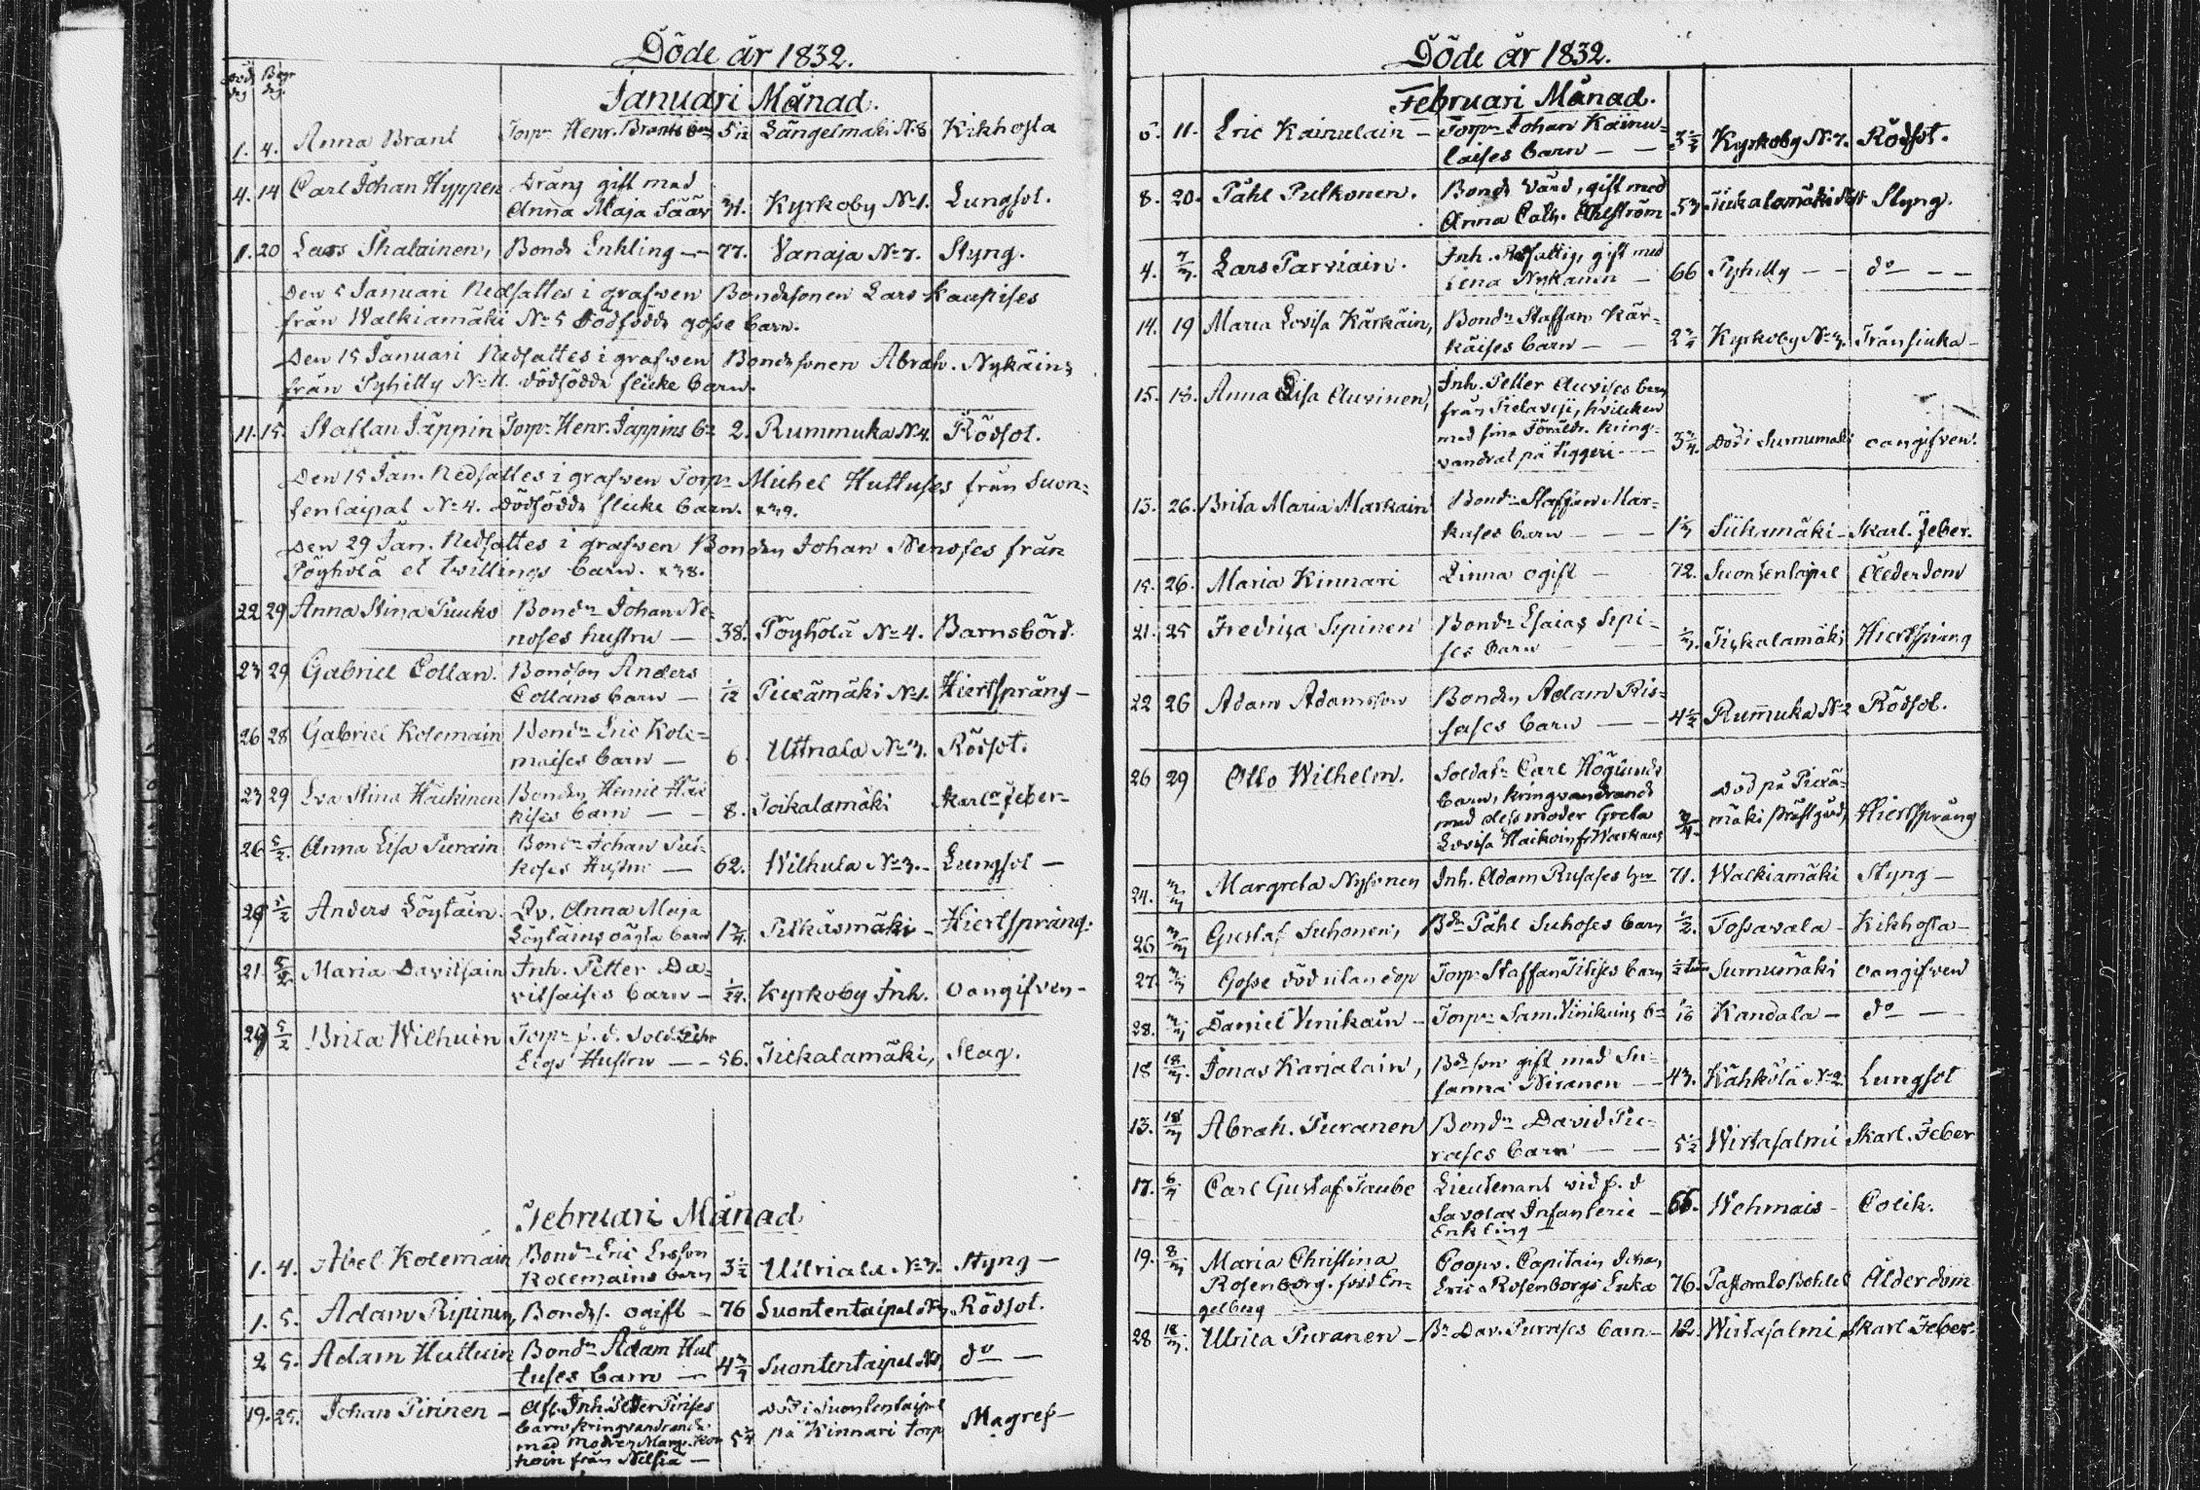 Döde år 1832.
Död dag Begr dag
Januari Månad.
1. 4. Anna Brant Torpr Henr. Brants barn 5/12 Längelmäki No 8 Kikhosta
4. 14 Carl Johan Hyppen Dräng gift med
Anna Maja Sääv 31. Kyrkoby No 1. Lungsot.
1. 20 Lars Ikalainen, Bonde Enkling — 77. Vanaja No 7. Styng.
Den 5 Januari Nedsattes i grafven Bondesonen Lars Kaupises
från Walkiamäki No 5 dödfödde gosse barn.
Den 15 Januari Nedsattes i grafven Bondesonen Abrah. Nykäins
från Pyhitty No 11. dödfödde flicke barn.
11. 15. Staffan Jäppin Torpr Henr. Jäppins bn 2. Rummuka No 4. Rödsot.
Den 15 Jan. Nedsattes i grafven Torpr Michel Huttuses från Suon-
tentaipal No 4. dödfödde flicke barn.
Den 29 Jan. Nedsattes i grafven Bonden Johan Nenoses från
Pöyhölä et twillings barn.
22 29 Anna Stina Puuko Bondn Johan Ne-
noses hustru — 38. Pöyhölä No 4. Barnsbörd.
23 29 Gabriel Collan. Bondson Anders
Collans barn — 1/12 Piexämäki No 1. Hiertspräng —
26 28 Gabriel Kolemain Bondn Eric Kole-
maises barn — 6. Uttriala No 3. Rödsot.
23 29 Eva Stina Häkinen Bonden Henric Häk
kises barn — — 8. Toikalamäki Skarl. feber —
26 5/2. Anna Lisa Purain Bondn Johan Pul-
koses Hustru — 62. Wilhula No 3. — Lungsot —
29 5/2 Anders Löytäin. Qv. Anna Maja
Löytäins oägta barn 1 3/4. Pitkäsmäki — Hiertspräng.
21. 5/2 Maria Davitsain Inh. Petter Da-
vitsaises barn — 1/24. Kyrkoby Inh. oangifven —
29 5/2 Brita Wilhuin Torpr f. d. Sold.
Elgs Hustru — — 56. Tickalamäki, Slag.
Februari Månad
1. 4. Abel Kolemain Bondn Eric Ersson
Kolemains barn 3 1/2 Uttriala No 3. Styng —
1. 5. Adam Ripinen, Bondes. ogift — 76 Suontentaipal Rödsot.
2 5. Adam Huttuin Bondn Adam Hut
tuses barn — 4 3/4 Suontentaipal do —
19. 25. Johan Pirinen — Afl. Inh. Petter Pirises
barn kringvandrande
med Modren Marg.
från Nilsiä — 5 1/4 död i Suontentaipal
på Kinnari torp Magref —
Döde år 1832.
Februari Månad.
5. 11. Eric Kainulain — Torpr Johan Kainu-
laises barn — — 3 1/4 Kyrkoby No 7. Rödsot.
8. 20. Påhl Pulkonen. Bonde Värd, gift med
Anna Cath. Ahlström 53 Tickalamäki Styng.
4. 7/3. Lars Parviain. Inh. Utfattig, gift med
Lena Nykänen — 66 Pyhitty — — do — —
14. 19 Maria Lovisa Kärkäin, Bondn Staffan Kär-
käises barn — — 2 3/4 Kyrkoby No 3. Trånsiuka —
15. 18. Anna Lisa Auvinen, Inh. Petter Auvises barn
från Pielavesi, hvilcken
med sina Föräldr. kring-
vandrat på Tiggeri — 3 3/4. Död i Surnumäki oangifven.
15. 26. Brita Maria Markain Bondn Staffan Mar-
kases barn — — 1 1/3 Siikamäki — Skarl. feber.
15. 26. Maria Kinnari Qinna ogift — 72. Suontentaipal Ålderdom
21. 25 Fredrica Sepinen Bondn Esaias Sepi-
ses barn 1/3. Tickalamäki Hiertspräng
22 26 Adam Adamsson Bonden Adam Ris-
sases barn — — 4 1/2 Rummuka No 2 Rödsot.
26 29 Otto Wilhelm. Soldatn Carl Höglunds
barn, kringvandrande
med dess moder Greta
Lovisa Haikoin fr. Warkaus 3/4. död på Piexä-
mäki prästgård, Hiertspräng
24. 3/3 Margreta Nysönen Inh. Adam Rusases hu 71. Walkiamäki Styng —
26 3/3 Gustaf Suhonen, Bdn Påhl Suhoses barn 1/2. Tossavala — Kikhosta —
27. 3/3 Gosse död utan dop Torpr Staffan Titises barn 1/2 tim Surnumäki oangifven
28. 3/3 Daniel Vinikäin — Torpr Sam. Vinikäins bn 1/16 Kandala — do — —
18 18/3. Jonas Karialain, Bdeson gift med Su-
sanna Niranen — — 43. Kähkölä No 2 Lungsot
13. 18/3 Abrah. Puranen Bondn David Pu-
rases barn — — 5 1/2 Wirtasalmi Skarl. Feber
17. 6/3 Carl Gustaf Taube Lieutenant vid f. d
Savolax Infanterie —
Enkling — 66. Wehmais — Colik.
19. 8/3 Maria Christina
Rosenborg. född En-
gelberg Coopv. Capitain Johan
Eric Rosenborgs Enka 76. Pastorats Bohlet Ålderdom
28 18/3. Ulrica Puranen — Bn Dav. Purases barn — 12. Wirtasalmi, Skarl. Feber.